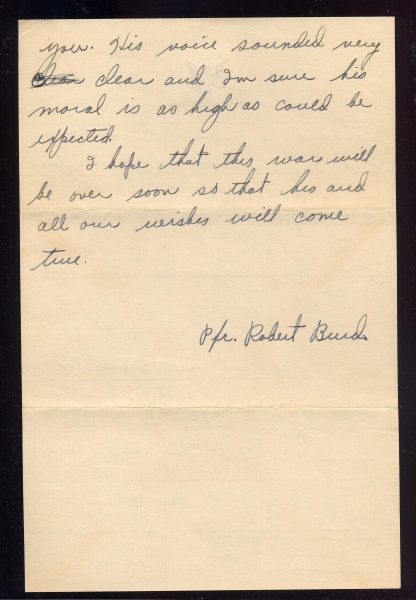 you. His voice sounded very
clear and I'm sure his
moral is as high as could be
expected.
I hope that this war will
be over soon so that his and
all our wishes will come
true.
Pfc. Robert Burd.